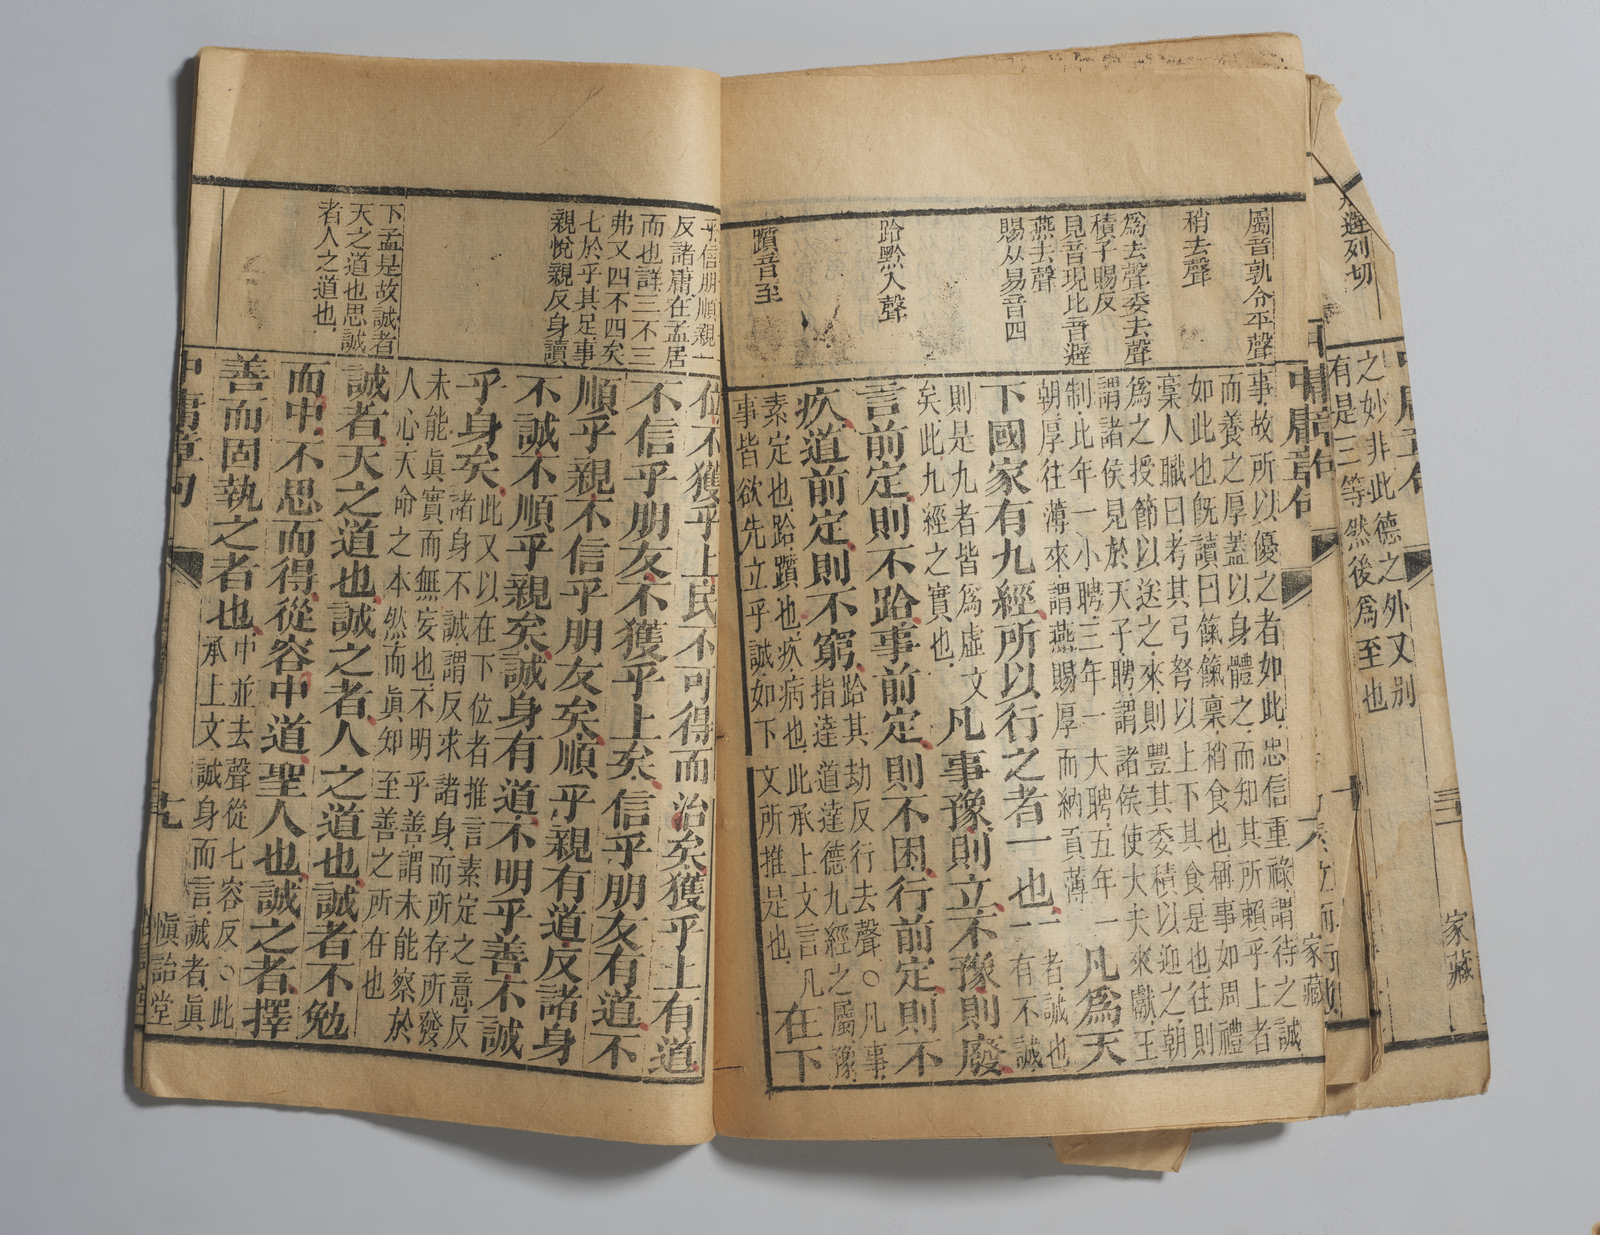 避列切
之妙非此德之外又别
有是三等然後爲至也
家藏
屬音孰分平聲
稍去聲
爲去聲委去聲
積子賜反
見音現比音避
燕去聲
賜从易音四
跲黙入聲
躓音至
中庸章句
家藏
事故所以優之者如此忠信重祿謂待之誠
而養之厚蓋以身體之而知其所賴乎上者
如此也旣讀曰餼餼稟稍食也稱事如周禮
稾人職曰考其弓弩以上下其食是也往則
爲之授節以送之來則豐其委積以迎之朝
謂諸侯見於天子聘謂諸侯使大夫來獻王
制比年一小聘三年一大聘五年一
朝厚往薄來謂燕賜厚而納貢薄
凡爲天
下國家有九經所以行之者一也
一者誠也
一有不誠
則是九者皆爲虛文
矣此九經之實也
凡事豫則立不豫則廢
言前定則不跲事前定則不困行前定則不
疚道前定則不窮
跲其劫反行去聲○凡事
指達道達德九經之屬豫
素定也跲躓也疚病也此承上文言凡
事皆欲先立乎誠如下文所推是也
在下
乎信朋順親一
反諸庸在孟居
而也詳三不三
弗又四不四矣
七於乎其足事
親悅親反身讀
下孟是故誠者
天之道也思誠
者人之道也
位不獲乎上民不可得而治矣獲乎上有道
不信乎朋友不獲乎上矣信乎朋友有道不
順乎親不信乎朋友矣順乎親有道反諸身
不誠不順乎親矣誠身有道不明乎善不誠
乎身矣
此又以在下位者推言素定之意反
諸身不誠謂反求諸身而所存所發
未能眞實而無妄也不明乎善謂未能察於
人心天命之本然而眞知至善之所在也
誠者天之道也誠之者人之道也誠者不勉
而中不思而得從容中道聖人也誠之者擇
善而固執之者也
中並去聲從七容反○此
承上文誠身而言誠者眞
中庸章句
愼詒堂